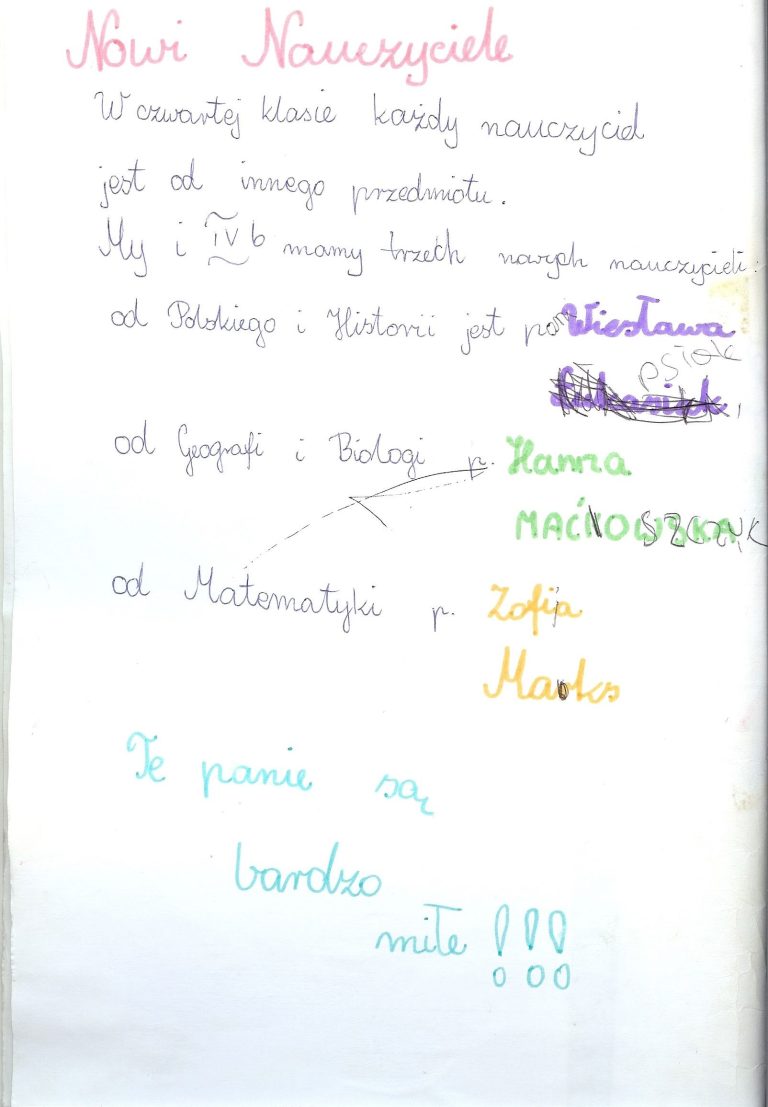 Nowi Nauczyciele
W czwartej klasie każdy nauczyciel
jest od innego przedmiotu.
My i IV b mamy trzech nowych nauczycieli:
od Polskiego i Historii jest pani Wiesława
psiak
od Geografi i Biologi p. Hanna
MAĆKOWSKA SZCZYK
od Matematyki p. Zofija
Marks
Te panie są
bardzo
miłe !!!